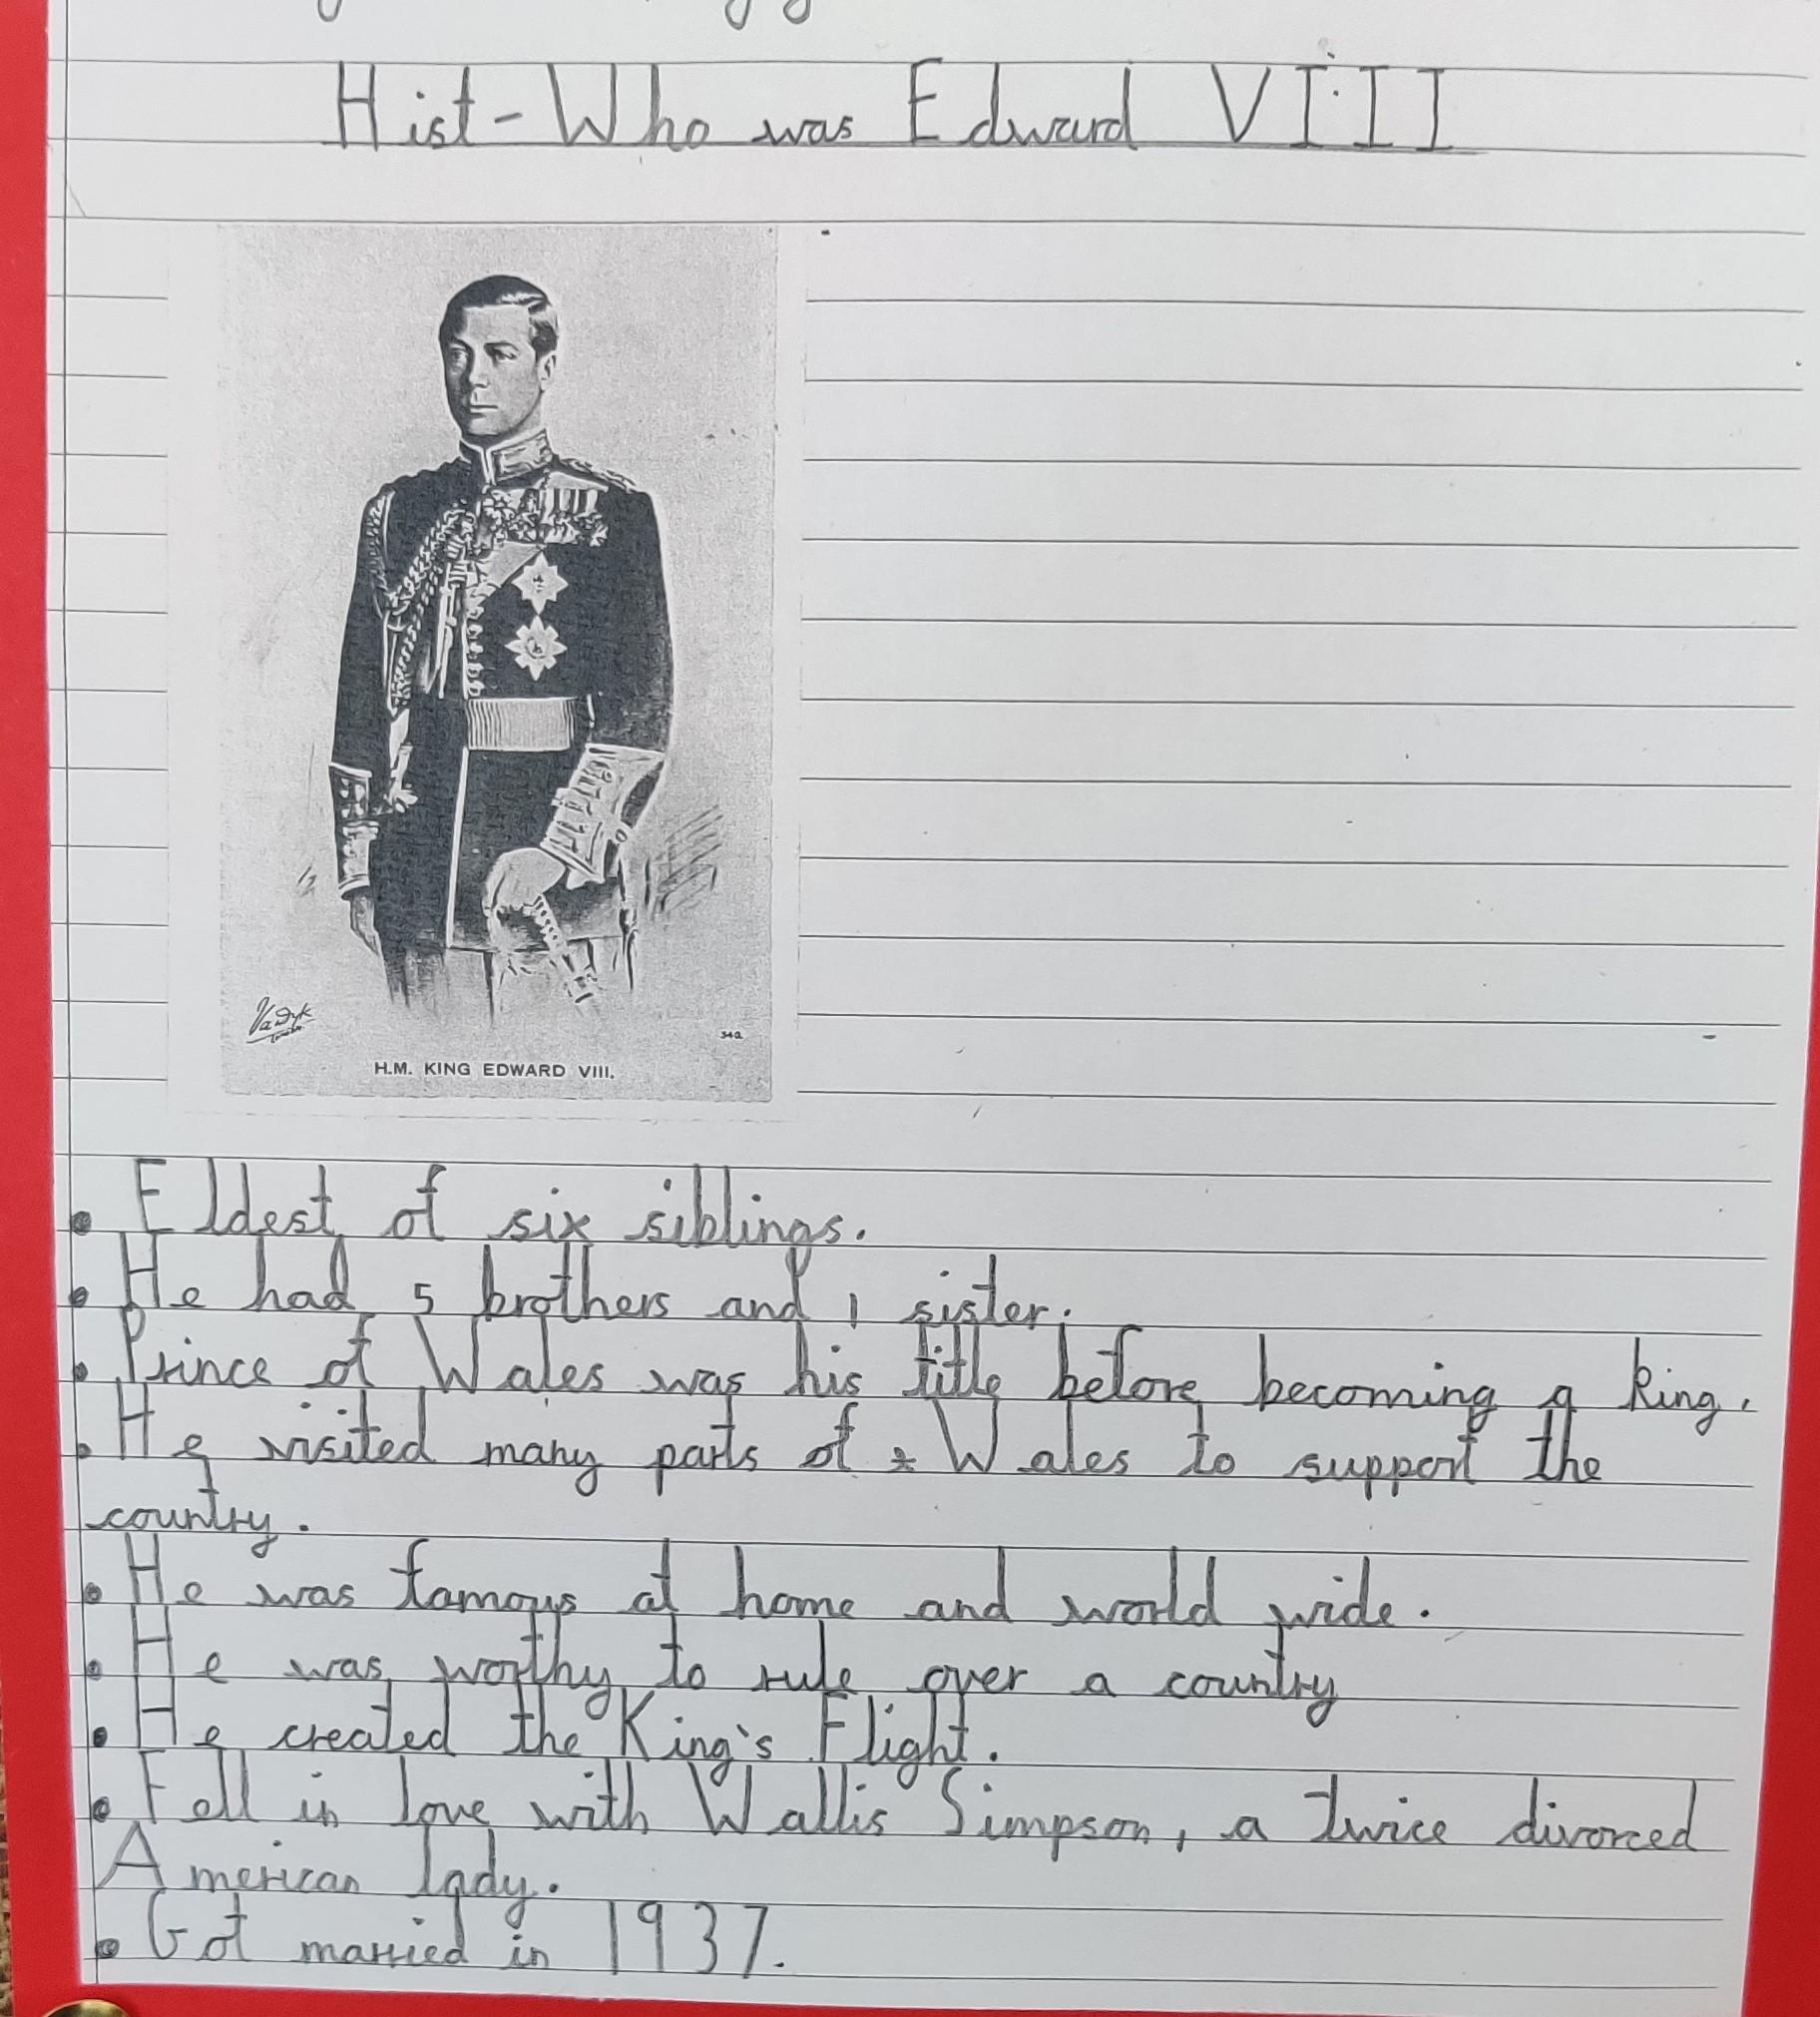 Hist - Who was Edward VIII
Va Dyk
34Q
H.M. KING EDWARD VIII.
• Eldest of six siblings.
• He had 5 brothers and 1 sister.
• Prince of Wales was his title before becoming a king.
• He visited many parts of Wales to support the
country.
• He was famous at home and world wide.
• He was worthy to rule over a country
• He created the King's Flight.
• Fell in love with Wallis Simpson, a twice divorced
American lady.
• Got married in 1937.